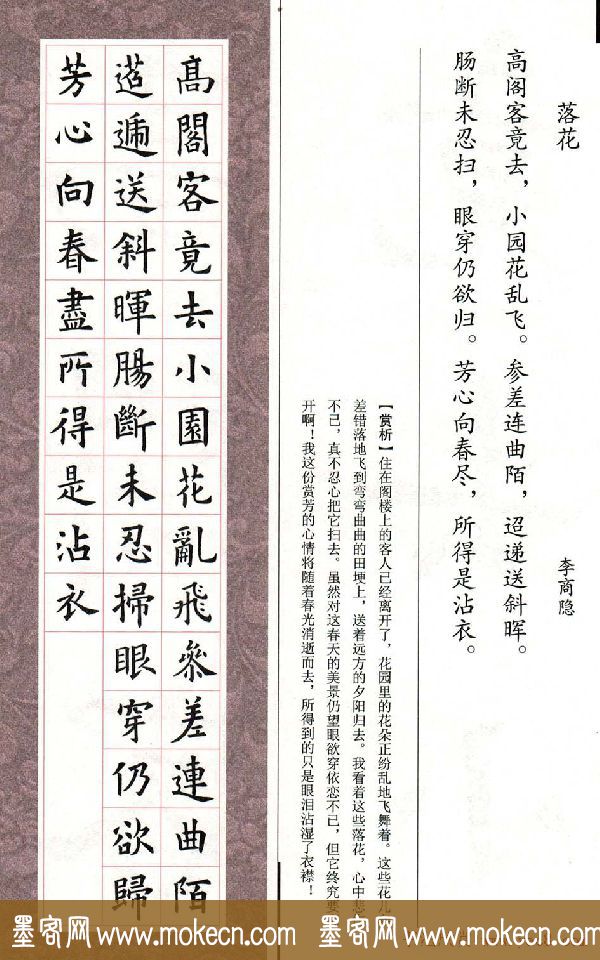 落花
李商隐
高阁客竟去，小园花乱飞。参差连曲陌，迢递送斜晖。
肠断未忍扫，眼穿仍欲归。芳心向春尽，所得是沾衣。
【赏析】住在阁楼上的客人已经离开了，花园里的花朵正纷乱地飞舞着。这些花
差错落地飞到弯弯曲曲的田埂上，送着远方的夕阳归去。我看着这些落花，心中悲
不已，真不忍心把它扫去。虽然对这春天的美景仍望眼欲穿依恋不已，但它终究要
开啊！我这份赏芳的心情将随着春光消逝而去，所得到的只是眼泪沾湿了衣襟！
髙閣客竟去小園花亂飛參差連曲陌
迢遞送斜暉腸斷未忍掃眼穿仍欲歸
芳心向春盡所得是沾衣
墨客网 www.mokecn.com 墨客网 www.mokecn.com